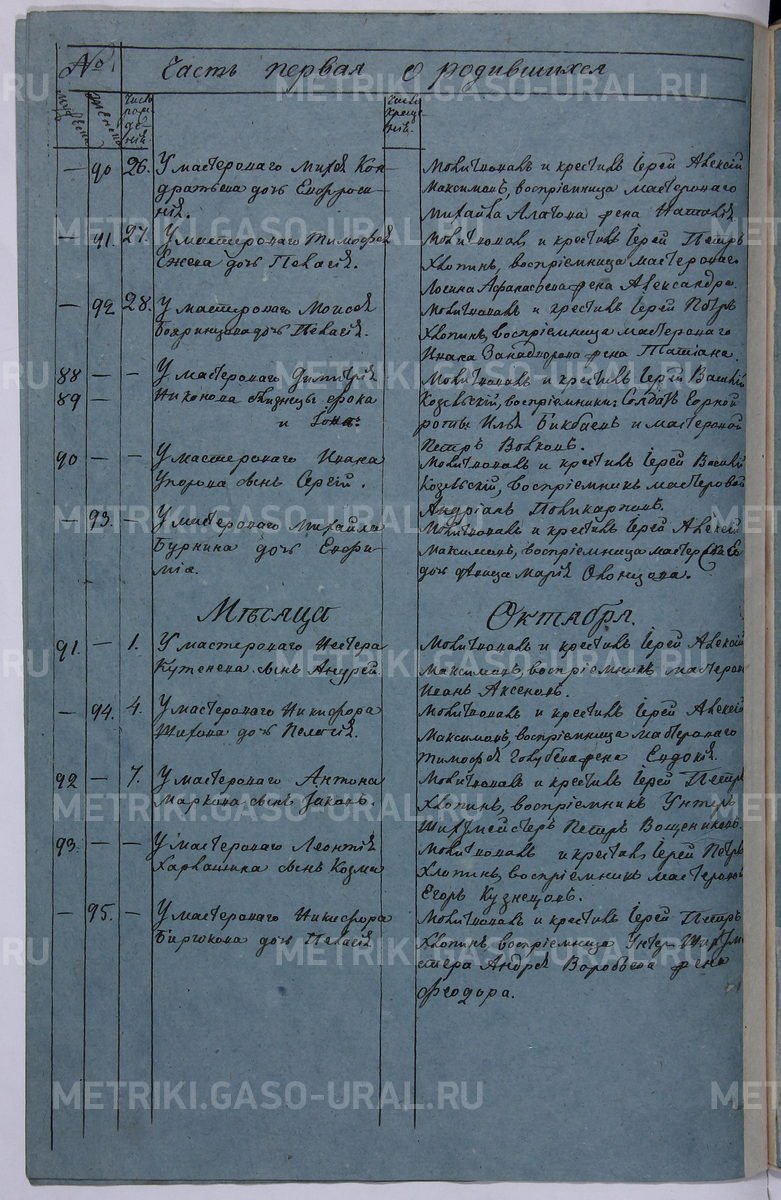 № Часть первая о родившихся
Число рож де нiй.
Число креще нiй.
— 90 26. У мастероваго Михея Кон-
дратьева дочь Евфроси-
нiя.
Молитвовалъ и крестилъ Iерей Алексiй
Максимовъ, воспрiемница мастероваго
Михайла жена Наталiя
— 91. 27. У мастероваго Тимофея
Ежева дочь Пелагiя.
Молитвовалъ и крестилъ Iерей Петръ
Хлопинъ, воспрiемница мастероваго
Логина Афанасьева жена Александра.
— 92 28. У мастероваго Моисея
Бояринцова дочь Пелагiя.
Молитвовалъ и крестилъ Iерей Петръ
Хлопинъ, воспрiемница мастероваго
Ивана жена Татiана.
88 — — У мастероваго Димитрiя
89 — Никонова близнецы
и Iона:
Молитвовалъ и крестилъ Iерей Василiй
Козельскiй, воспрiемники: Солдатъ Горной
роты Илья Бикбаевъ и мастеровой
Петръ Волковъ.
90 — — У мастероваго Ивана
Упорова сынъ Сергiй.
Молитвовалъ и крестилъ Iерей Василiй
Козельскiй, воспрiемникъ мастеровой
Андрiанъ Поликарповъ.
— 93. — У мастероваго Михайла
Буркина дочь Евфи-
мiя.
Молитвовалъ и крестилъ Iерей Алексiй
Максимовъ, воспрiемница мастер
дочь девица Марiя
Мѣсяца Октября.
91. — 1. У мастероваго Нестера
Кутенева сынъ Андрей
Молитвовалъ и крестилъ Iерей Алексiй
Максимовъ, воспрiемникъ мастеров
Иванъ Аксеновъ.
— 94. 4. У мастероваго Никифора
Шихова дочь Пелагiя.
Молитвовалъ и крестилъ Iерей Алексiй
Максимовъ, воспрiемница мастероваго
Тимофея Голубева жена Евдокiя.
92 — 7. У мастероваго Антона
Маркова сынъ Iаковъ.
Молитвовалъ и крестилъ Iерей Петръ
Хлопинъ, воспрiемникъ Унтеръ
Шихтмейстеръ Петръ Вощениковъ.
93. — — У мастероваго Леонтiя
сынъ Козма
Молитвовалъ и крестилъ Iерей Петръ
Хлопинъ, воспрiемникъ мастеров
Егоръ Кузнецовъ.
— 95. — У мастероваго Никифора
Бирюкова дочь Пелагiя
Молитвовалъ и крестилъ Iерей Петръ
Хлопинъ воспрiемница Унтер-Шихтм
стера Андрея Воробьева жена
Феодора.
METRIKI.GASO-URAL.RU